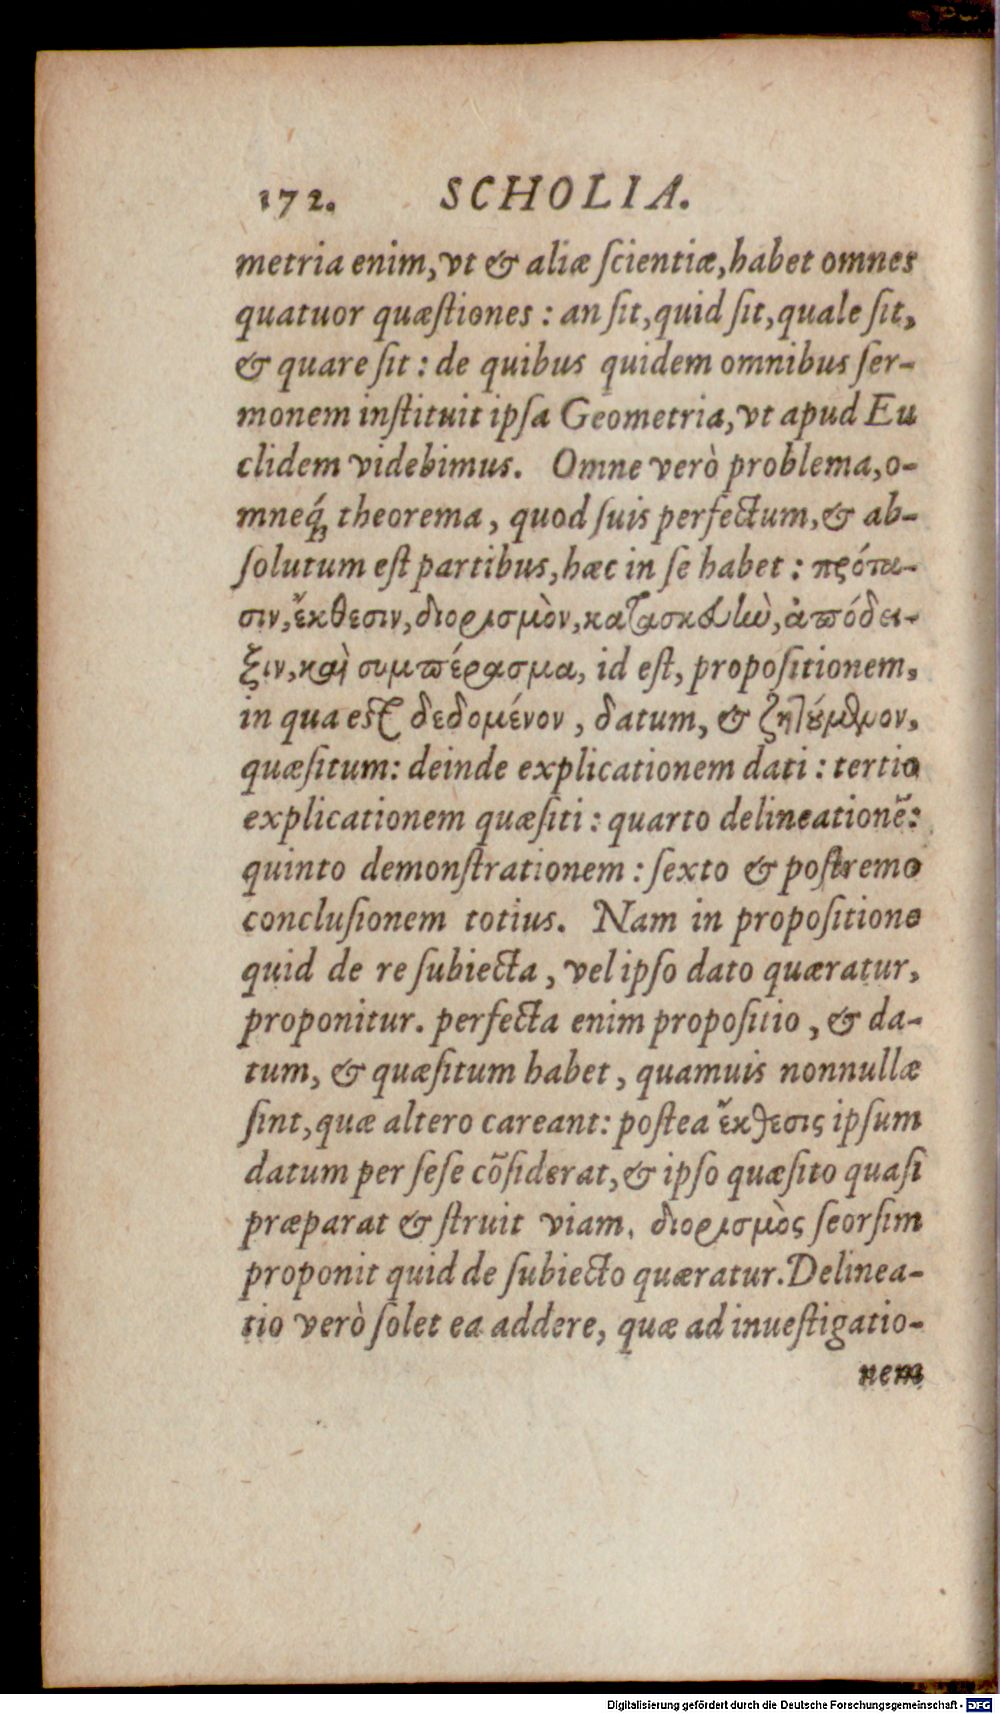 172. SCHOLIA.
metria enim, vt & aliæ ſcientiæ, habet omnes
quatuor quæſtiones : an ſit, quid ſit, quale ſit,
& quare ſit : de quibus quidem omnibus ſer-
monem inſtituit ipſa Geometria, vt apud Eu
clidem videbimus. Omne verò problema, o-
mneq́; theorema, quod ſuis perfectum, & ab-
ſolutum eſt partibus, hæc in ſe habet : πρότα-
σιν, ἔκθεσιν, διορισμὸν, κατασκευὼ, ἀπόδει-
ξιν, καὶ συμπέρασμα, id eſt, propoſitionem,
in qua est δεδομένον, datum, & ζητούμενον,
quæſitum: deinde explicationem dati : tertio
explicationem quæſiti : quarto delineationẽ:
quinto demonſtrationem : ſexto & poſtremo
concluſionem totius. Nam in propoſitione
quid de re ſubiecta, vel ipſo dato quæratur,
proponitur. perfecta enim propoſitio, & da-
tum, & quæſitum habet, quamuis nonnullæ
ſint, quæ altero careant: poſtea ἔκθεσις ipſum
datum per ſeſe cõſiderat, & ipſo quæſito quaſi
præparat & ſtruit viam. διορισμὸς ſeorſim
proponit quid de ſubiecto quæratur. Delinea-
tio verò ſolet ea addere, quæ ad inueſtigatio-
nem
Digitalisierung gefördert durch die Deutsche Forschungsgemeinschaft - DFG